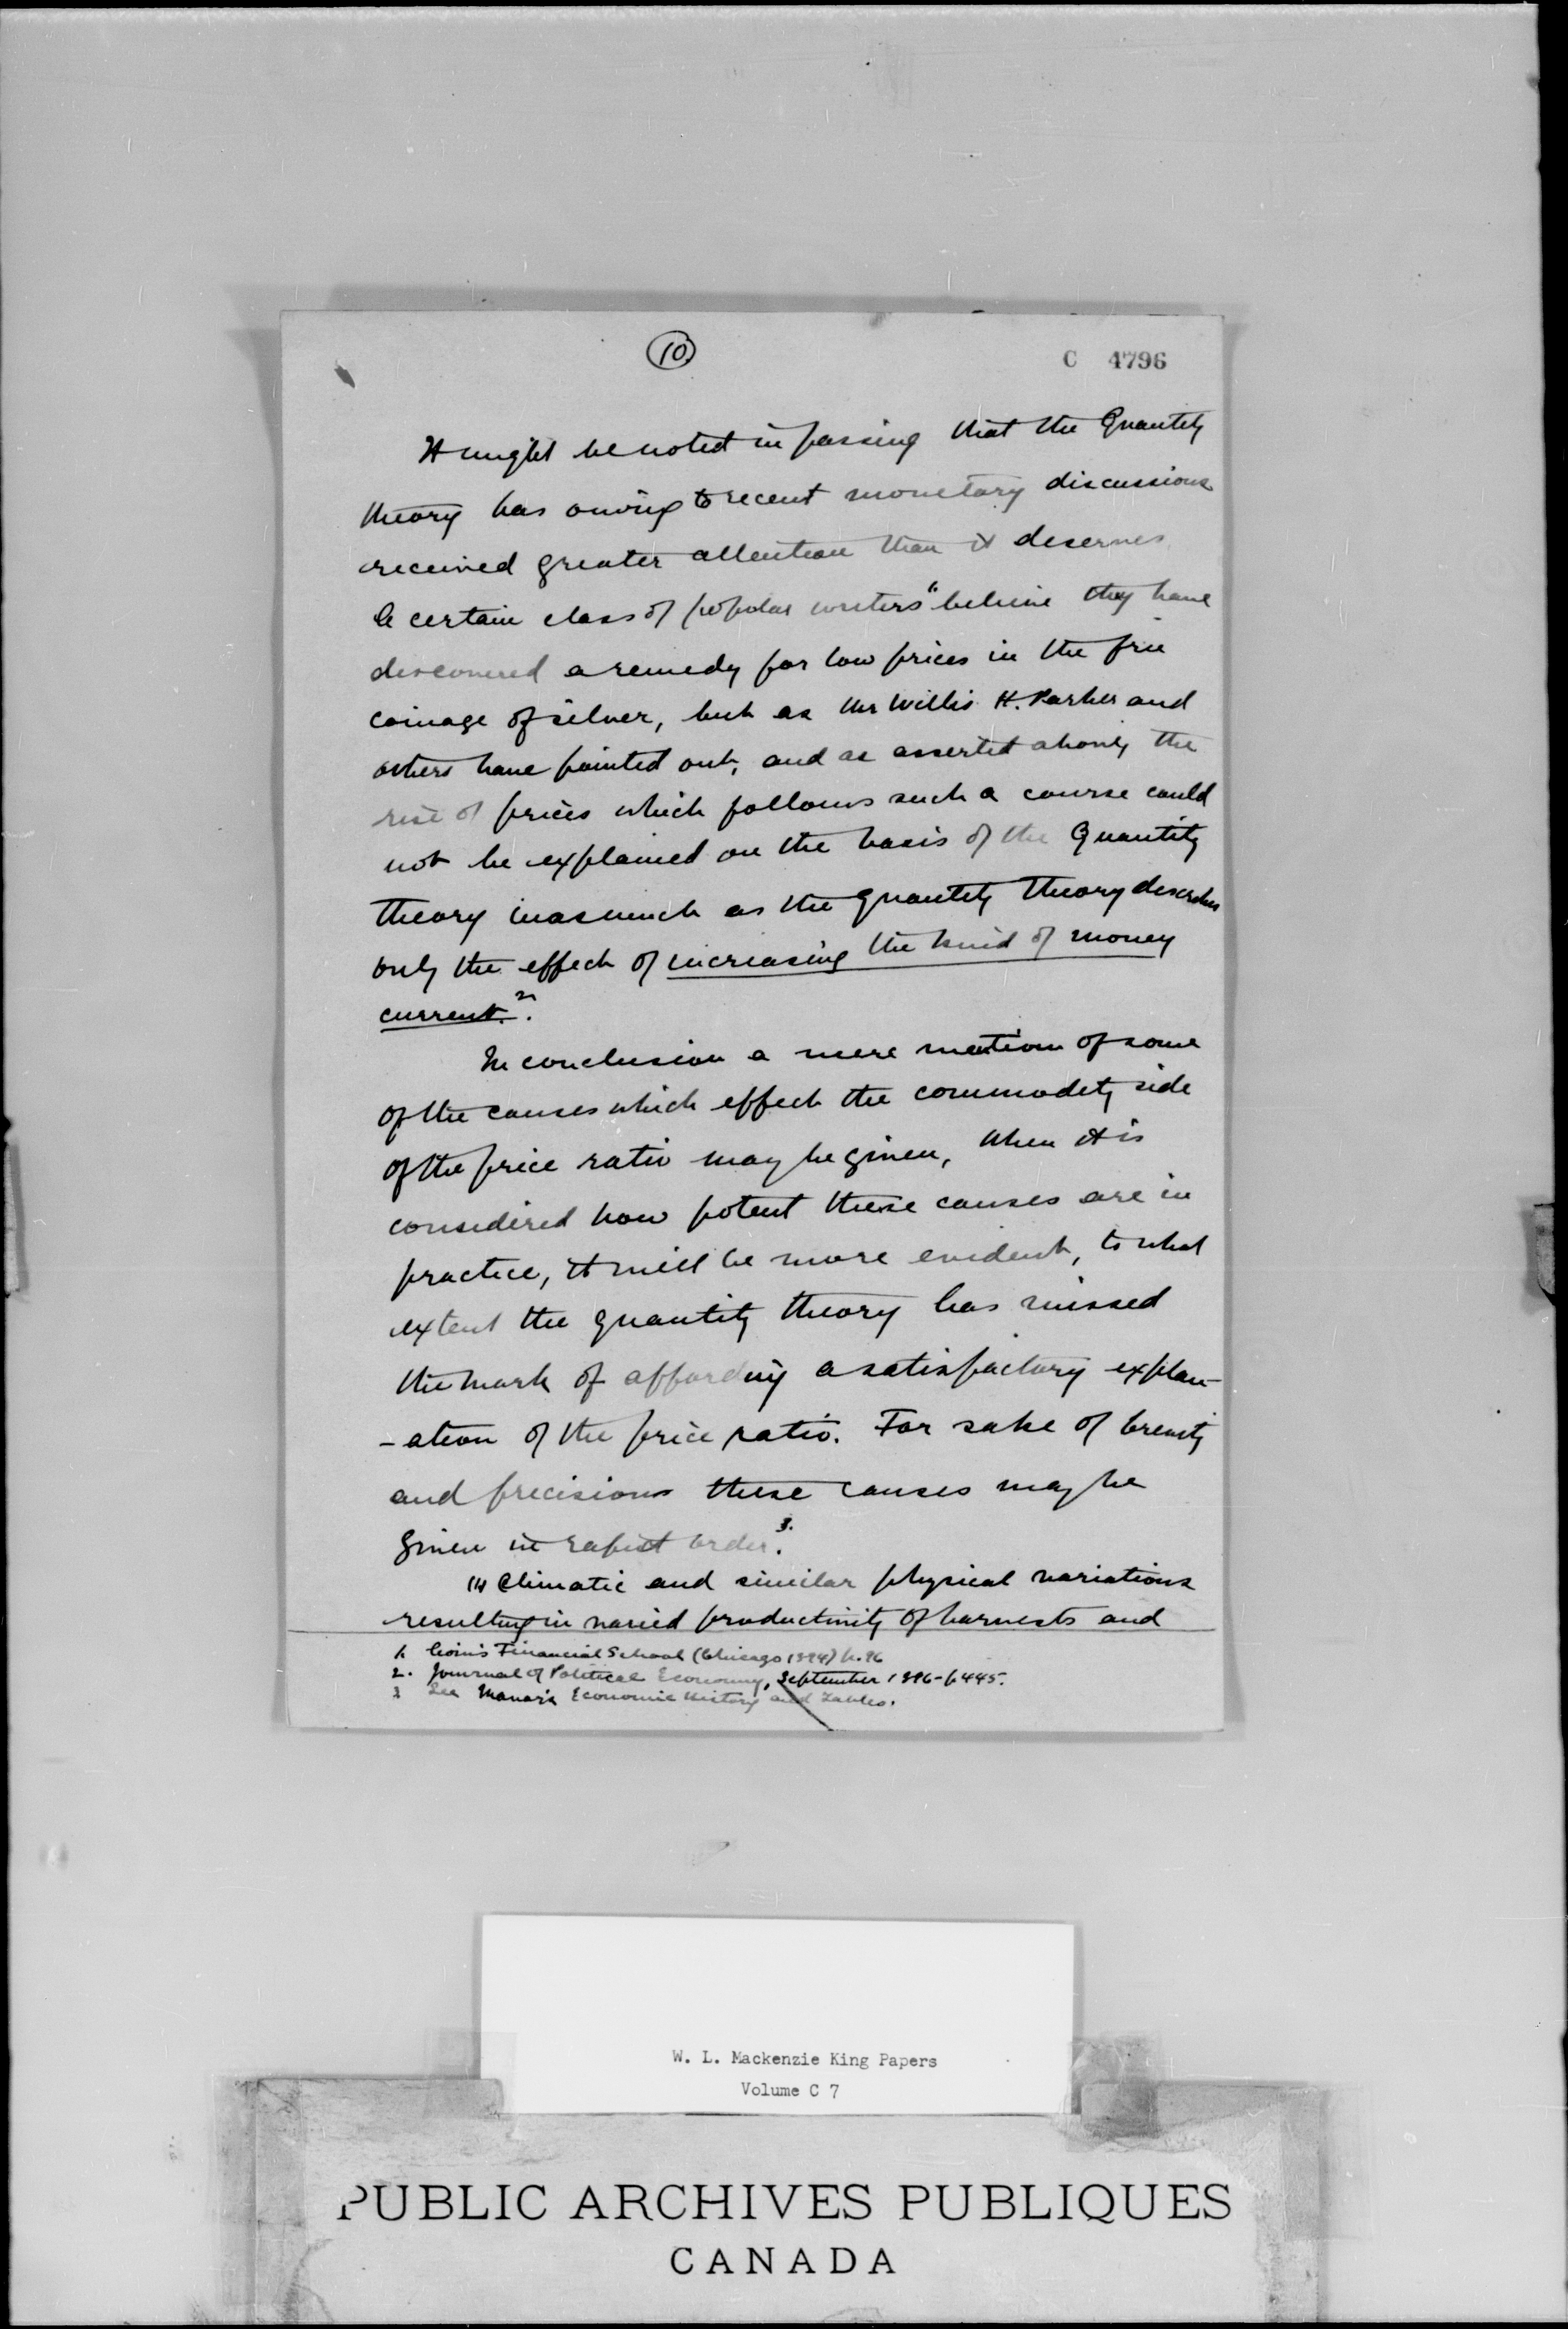 10
C 4796
It might be noted in passing that the Quantity
theory has owing to recent monetary discussions
received greater attention than it deserves.
A certain class of popular writers" believe they have
discovered a remedy for low prices in the free
coinage of silver, but as Mr Willis H. Parker and
others have pointed out, and as asserted above, the
rise of prices which follows such a course could
not be explained on the basis of the Quantity
theory inasmuch as the Quantity Theory describes
only the effect of increasing the kind of money
current.2.
In conclusion a mere mention of some
of the causes which effect the commodity side
of the price ratio may be given, When it is
considered how potent these causes are in
practice, it will be more evident, to what
extent the quantity theory has missed
the mark of affording a satisfactory explan-
-ation of the price ratio. For sake of brevity
and precision these causes may be
given in rapid order.3.
(1) Climatic and similar physical variations
resulting in varied productivity of harvests and
1. Coin's Financial School (Chicago 1894) p. 96
2. Journal of Political Economy, September 1896-p445.
3 See Economic History and Tables.
W. L. Mackenzie King Papers
Volume C 7
PUBLIC ARCHIVES PUBLIQUES
CANADA